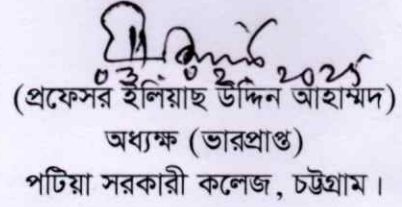 ০৩.০২.২০২৫
(প্রফেসর ইলিয়াছ উদ্দিন আহাম্মদ)
অধ্যক্ষ (ভারপ্রাপ্ত)
পটিয়া সরকারী কলেজ, চট্টগ্রাম।